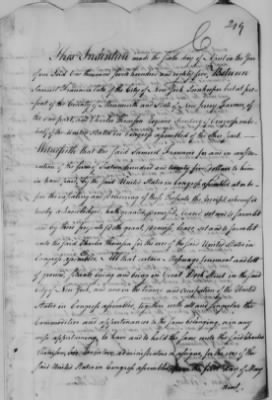 219
This Indenture made the Sixth day of April in the Year
of our Lord One thousand Seven hundred and eighty five, Between
Samuel Fraunces late of the City of New York Innkeeper but at pre-
sent of the County of Monmouth and State of New Jersey Farmer, of
the one part, and Charles Thomson Esquire Secretary of Congress on be-
half of the United States in Congress assembled of the other part
Witnesseth that the said Samuel Fraunces for and in con-
sideration of the Sum of Sixteen hundred and twenty five Dollars to him
in hand paid by the said United States in Congress assembled at or be-
fore the ensealing and delivering of these Presents the receipt whereof is
hereby acknowledged, hath granted, demised, leased set and to farm let
and by these presents doth grant demise lease set and to farm let
unto the said Charles Thomson for the use of the said United States in
Congress assembled, All that certain Dwelling house and lott
of ground, Situate lying and being in Great Dock Street in the said
City of New York, and now in the tenure and occupation of the United
States in Congress assembled, together with all and singular the
Commodities and appurtenances to the same belonging or in any
wise appertaining, to have and to hold the same unto the said Charles
Thomson, his Executors Administrators or Assigns for the use of the
said United States in Congress assembled from the first day of May
next